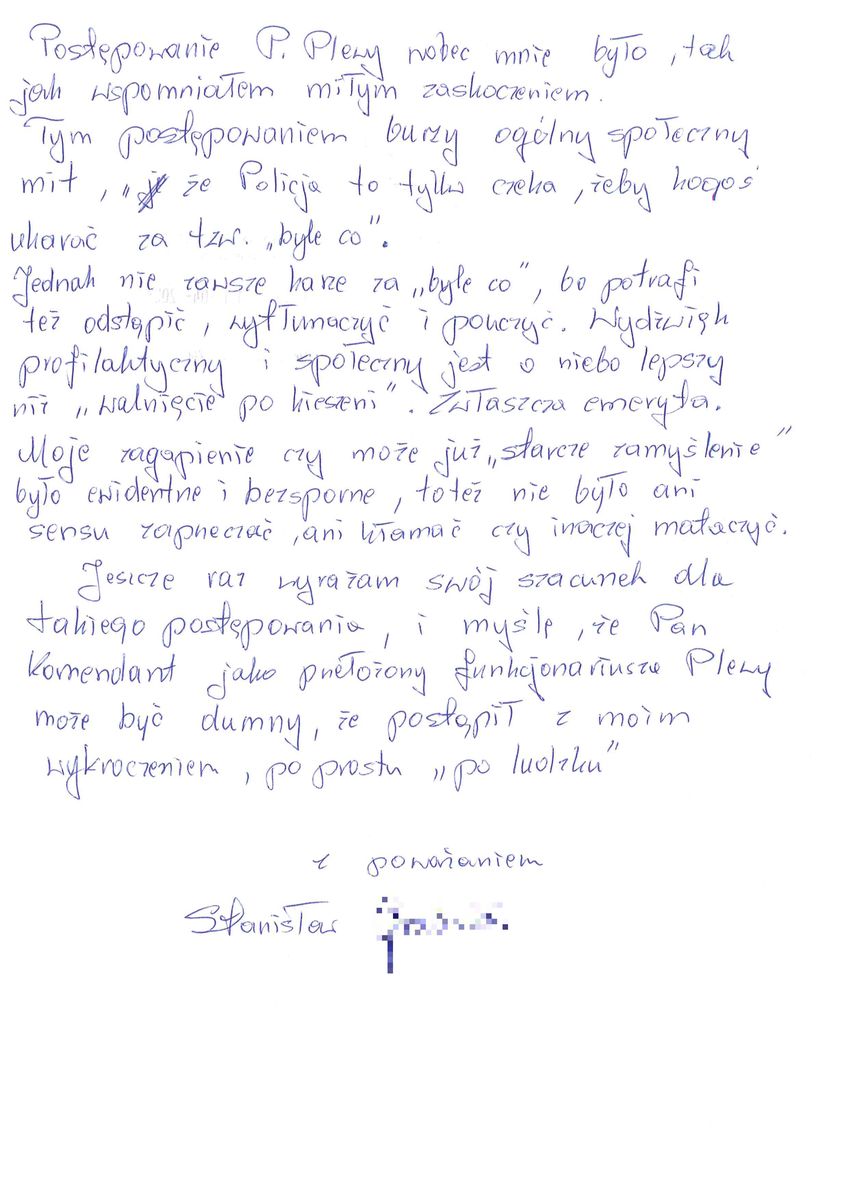 Postępowanie P. Plewy wobec mnie było, tak
jak wspomniałem miłym zaskoczeniem.
Tym postępowaniem burzy ogólny społeczny
mit, „ że Policja to tylko czeka, żeby kogoś
ukarać za tzw. „byle co”.
Jednak nie zawsze karze za „byle co”, bo potrafi
też odstąpić, wytłumaczyć i pouczyć. Wydźwięk
profilaktyczny i społeczny jest o niebo lepszy
niż „walnięcie po kieszeni”. Zwłaszcza emeryta.
Moje zagapienie czy może już „starcze zamyślenie”
było ewidentne i bezsporne, toteż nie było ani
sensu zaprzeczać, ani kłamać czy inaczej mataczyć.
Jeszcze raz wyrażam swój szacunek dla
takiego postępowania, i myślę, że Pan
Komendant jako przełożony funkcjonariusza Plewy
może być dumny, że postąpił z moim
wykroczeniem, po prostu „po ludzku”
z poważaniem
Stanisław